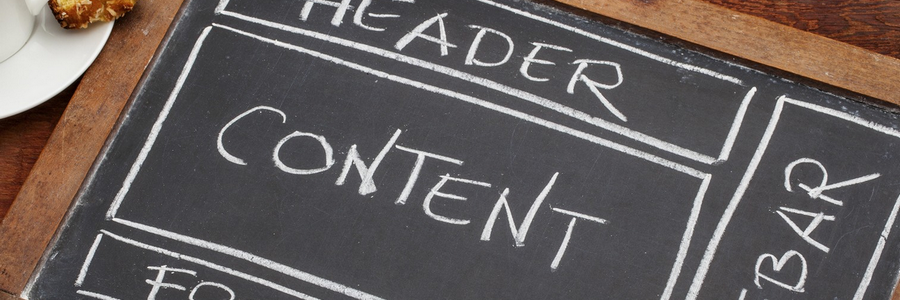 HEADER
CONTENT
BAR
FO